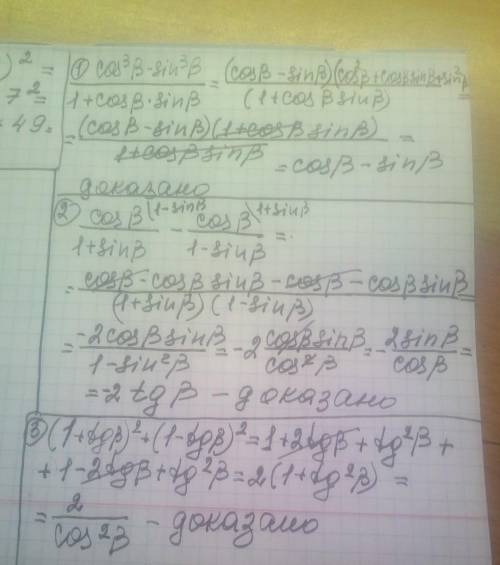 ) ² =
7² =
= 49.
① (cos³β - sin³β)/(1 + cosβ · sinβ) = ((cosβ - sinβ)(cos²β + cosβ sinβ + sin²β))/(1 + cosβ sinβ) =
= ((cosβ - sinβ)(1 + cosβ sinβ))/(1 + cosβ sinβ) =
= cosβ - sinβ
доказано
② cosβ\1-sinβ/(1 + sinβ) - cosβ\1+sinβ/(1 - sinβ) =
= (cosβ - cosβ sinβ - cosβ - cosβ sinβ)/((1 + sinβ)(1 - sinβ)) =
= (-2cosβ sinβ)/(1 - sin²β) = -2 (cosβ sinβ)/(cos²β) = -(2sinβ)/(cosβ) =
= -2 tgβ - доказано
③ (1 + tgβ)² + (1 - tgβ)² = 1 + 2tgβ + tg²β +
+ 1 - 2tgβ + tg²β = 2(1 + tg²β) =
= 2/(cos²β) - доказано